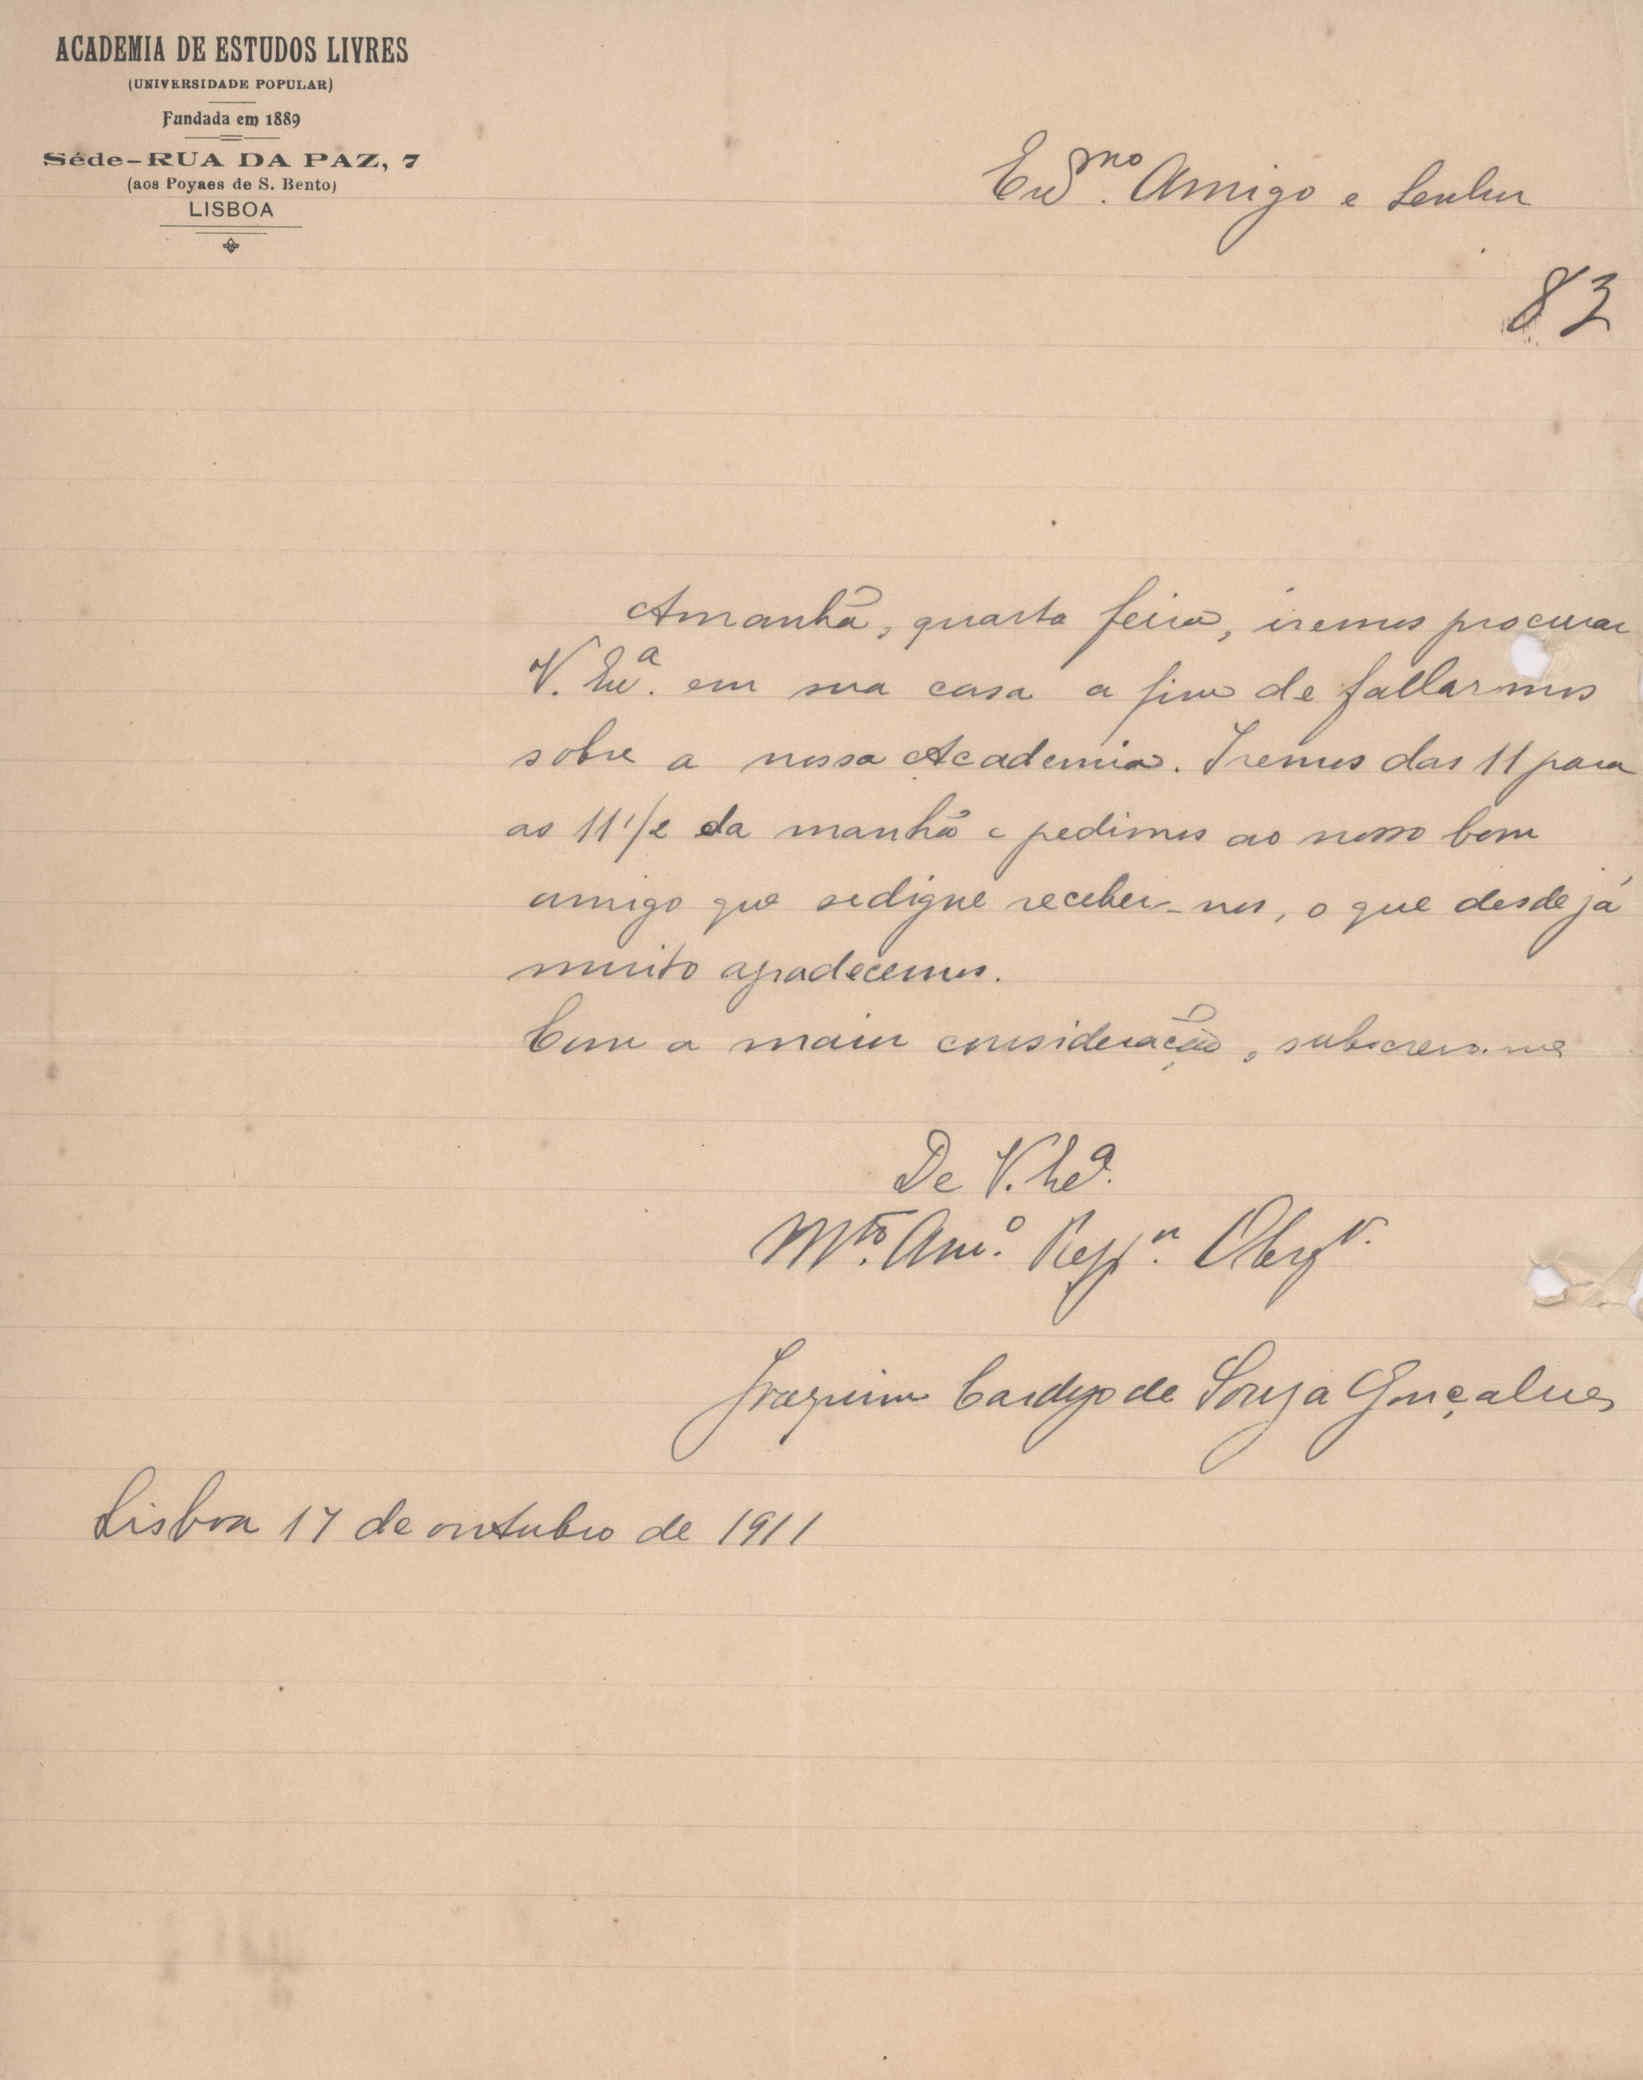 ACADEMIA DE ESTUDOS LIVRES
(UNIVERSIDADE POPULAR)
Fundada em 1889
Séde-RUA DA PAZ, 7
(aos Poyaes de S. Bento)
LISBOA
Exmo. Amigo e Senhor
83
Amanhã, quarta feira, iremos procurar
V. Exa. em sua casa a fim de fallarmos
sobre a nossa Academia. Iremos das 11 para
as 11 1/2 da manhã e pedimos ao nosso bom
amigo que se digne receber-nos, o que desde já
muito agradecemos.
Com a maior consideração, subscrevo-me
De V. Exa.
Mto. Amo. Respor. Obrgo.
Joaquim Cardoso de Souza Gonçalves
Lisboa 17 de outubro de 1911